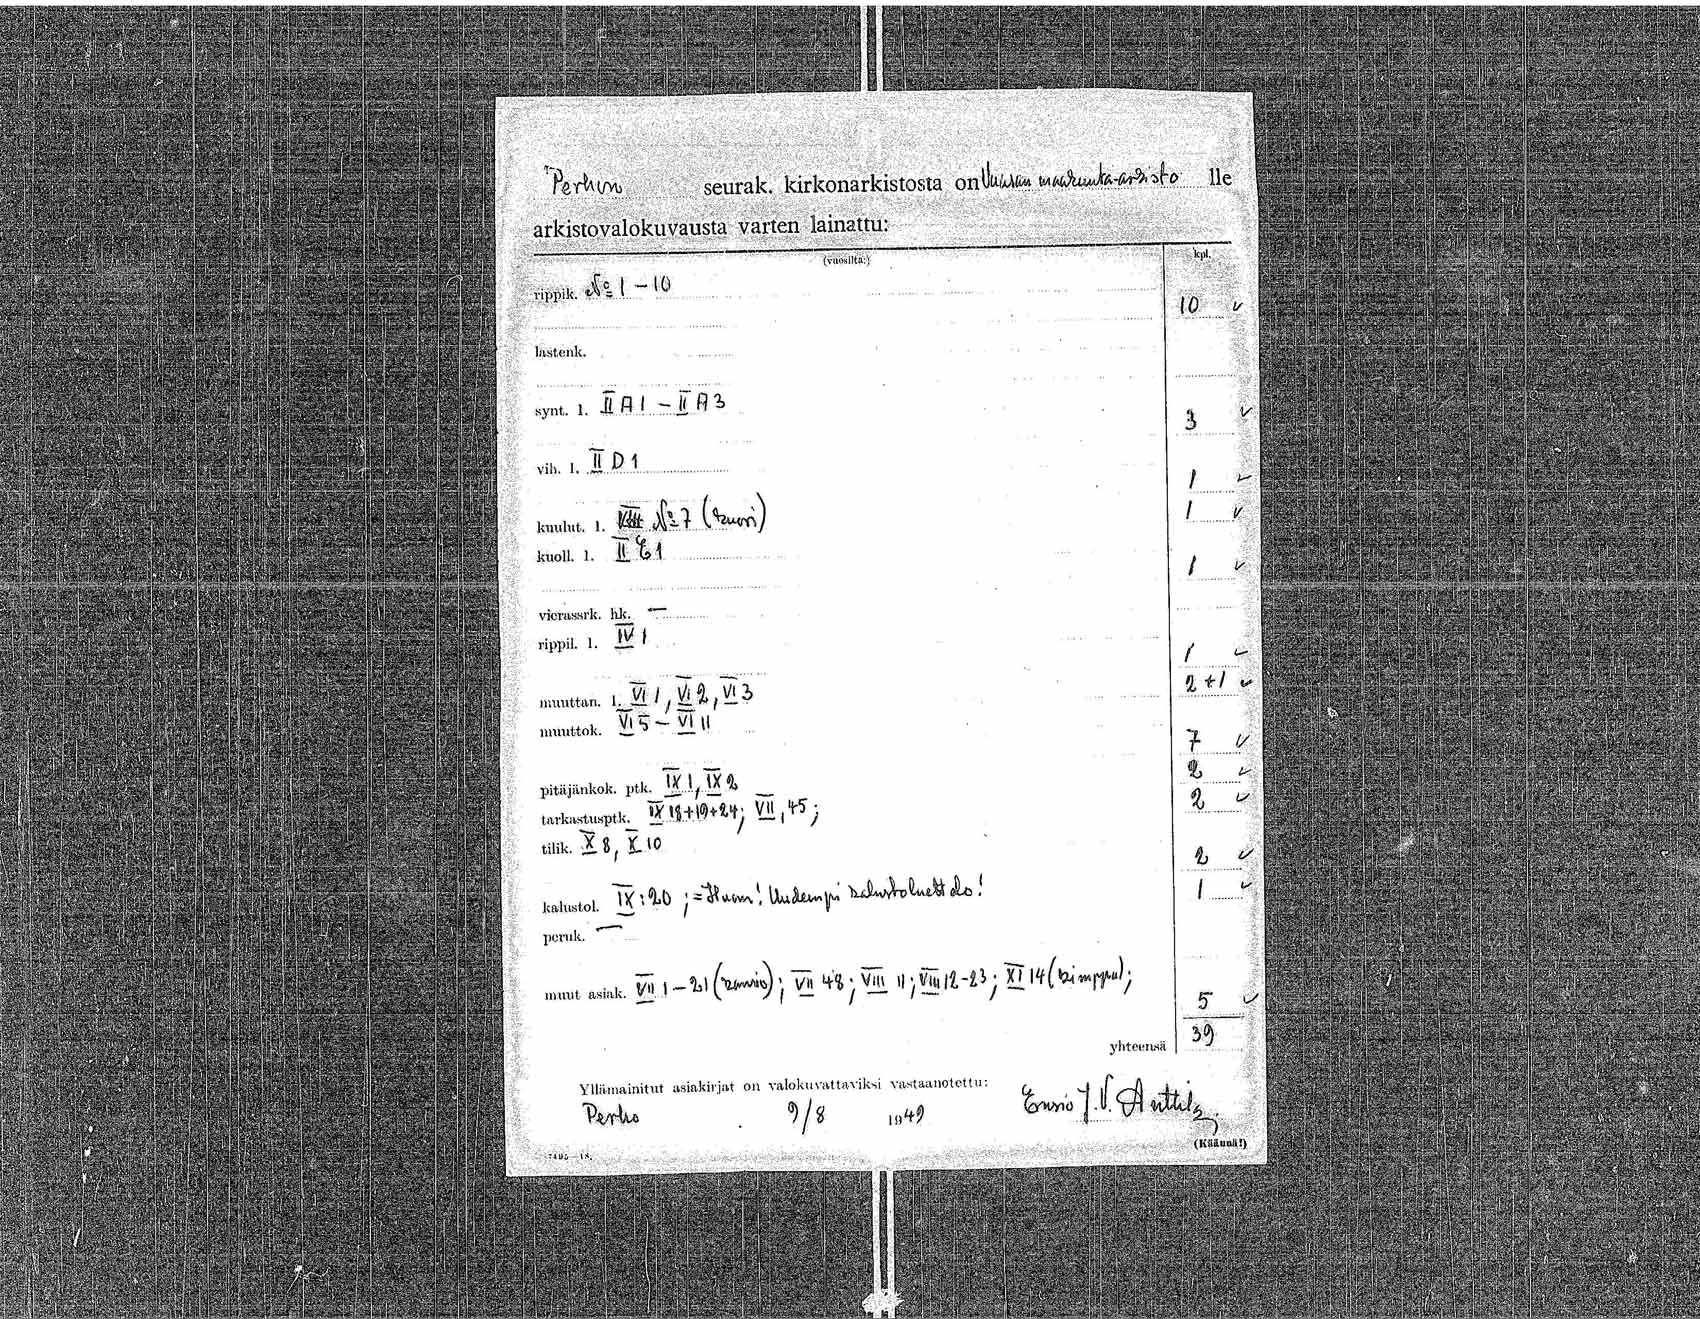 Perhon seurak. kirkonarkistosta on Vaasan maakunta-arkisto lle
arkistovalokuvausta varten lainattu:
(vuosilta:) kpl.
rippik. № 1 – 10 10 ✓
lastenk.
synt. l. II A 1 – II A 3 3 ✓
vih. l. II D 1 1 ✓
kuulut. l. № 7 (kuori) 1 ✓
kuoll. l. II E 1 1 ✓
vierassrk. hk. —
rippil. l. IV 1 1 ✓
muuttan. l. VI 1, VI 2, VI 3 2 + 1 ✓
muuttok. VI 5 – VI 11 7 ✓
pitäjänkok. ptk. IX 1, IX 2 2 ✓
tarkastusptk. IX 18+19+24; VII, 45; 2 ✓
tilik. X 8, X 10 2 ✓
kalustol. IX : 20 ; = Huom! Uudempi kalustoluettelo! 1 ✓
peruk. —
muut asiak. VII 1 – 21 (kansio); VII 48; VIII 11; VIII 12-23; XI 14 (kimppu); 5 ✓
yhteensä 39
Yllämainitut asiakirjat on valokuvattaviksi vastaanotettu:
Perho 9/8 1949 Ensio J. V. Anttila
(Käännä!)
7495—48.